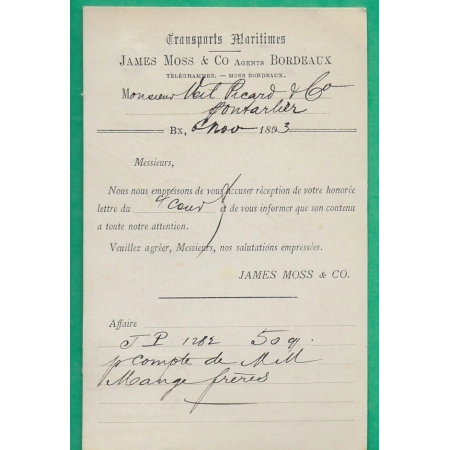 Transports Maritimes
JAMES MOSS & CO AGENTS BORDEAUX
TÉLÉGRAMMES. — MOSS BORDEAUX.
Monsieur Veil Picard & Co
Pontarlier
Bx, 6 Nov 1893
Messieurs,
Nous nous empressons de vous accuser réception de votre honorée
lettre du 4 cour et de vous informer que son contenu
a toute notre attention.
Veuillez agréer, Messieurs, nos salutations empressées.
JAMES MOSS & CO.
Affaire
J P 1282 50
p compte de MM
Mange frères